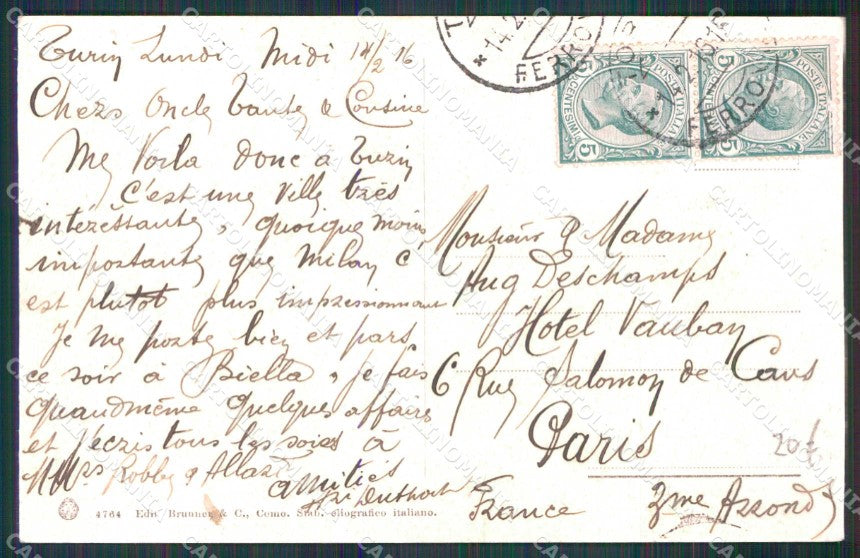 Turin Lundi Midi 14/2 16
Chers Oncle Tante & Cousine
Me Voila donc a Turin
C'est une Ville très
intéressante, quoique moins
importante que Milan c'
est plutot plus impressionnant
Je me porte bien et pars
ce soir à Biella, je fais
quandmême quelques affaires
et j'écris tous les soirs à
MMrs &
amitiés
4764 Edit. Brunner & C., Como. Stab. eliografico italiano.
Monsieur & Madame
Aug Deschamps
Hotel Vauban
6 Rue Salomon de Caus
Paris
France 3me Arrond
20
POSTE ITALIANE
CENTESIMI
5
5
POSTE ITALIANE
5
5
FERROV
FERROV
CARTOLINOMANIA